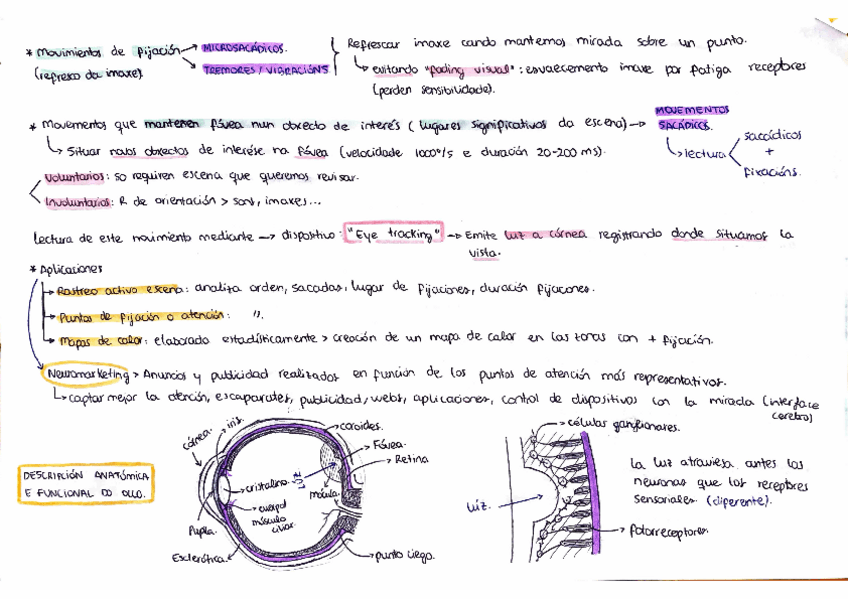 * Movimientos de fijación → MICROSÁCÁDICOS.
(refresco da imaxe). → TREMORES / VIBRACIÓNS
Refrescar imaxe cando mantemos mirada sobre un punto.
↳ evitando "fading visual": esvaecemento imaxe por fatiga receptores
(perden sensibilidade).
* Movementos que manteñen fóvea nun obxecto de interés (lugares significativos da escena) → MOVEMENTOS SACÁDICOS.
↳ Situar novos obxectos de interése na fóvea (velocidade 1000°/s e duración 20-200 ms).
↳ lectura < sacádicos
+
fixacións.
Voluntarios: so requiren escena que queremos revisar.
Involuntarios: R de orientación > sons, imaxes...
lectura de este movimiento mediante → dispositivo: "Eye tracking" → Emite luz a córnea registrando donde situamos la
vista.
* Aplicaciones
→ Rastreo activo escena: analiza orden, sacadas, lugar de fijaciones, duración fijaciones.
→ Puntos de fijación o atención: ".
→ Mapas de calor: elaborado estadísticamente > creación de un mapa de calor en las zonas con + fijación.
Neuromarketing > Anuncios y publicidad realizados en función de los puntos de atención más representativos.
↳ captar mejor la atención, escaparates, publicidad, webs, aplicaciones, control de dispositivos con la mirada (interface
cerebro)
DESCRIPCIÓN ANATÓMICA
E FUNCIONAL DO OLLO.
córnea.
iris.
coroides.
Fóvea.
Retina
cristalino.
mácula.
cuerpo
músculo
ciliar.
Pupila.
Esclerótica.
punto ciego.
células ganglionares.
luz.
fotorreceptores.
La luz atraviesa antes las
neuronas que los receptores
sensoriales. (diferente).